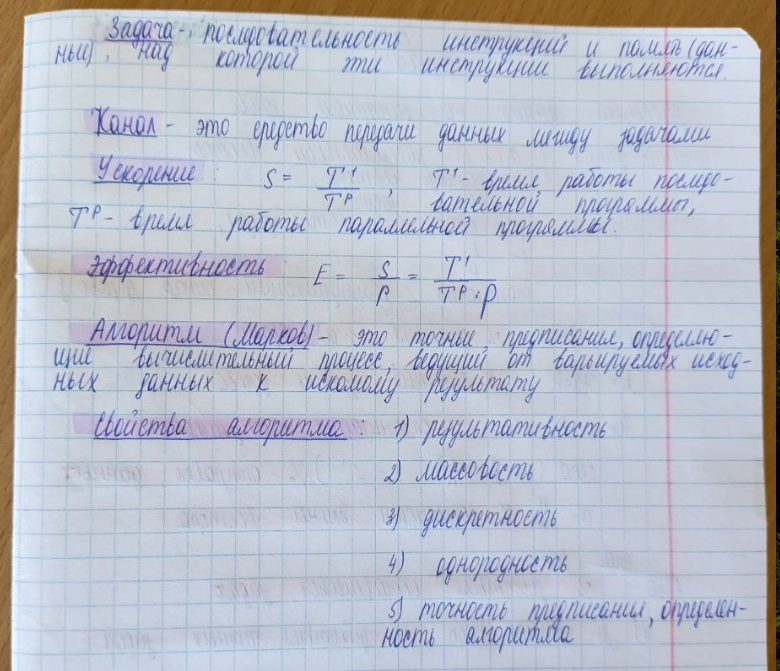 Задача - последовательность инструкций и память (дан-
ные), над которой эти инструкции выполняются.
Канал - это средство передачи данных между задачами
Ускорение: S = T¹/Tᴾ, T¹ - время работы последо-
вательной программы,
Tᴾ - время работы параллельной программы.
Эффективность: E = S/P = T¹/(Tᴾ·P)
Алгоритм (Марков) - это точные предписания, определяю-
щие вычислительный процесс, ведущий от варьируемых исход-
ных данных к искомому результату
Свойства алгоритма: 1) результативность
2) массовость
3) дискретность
4) однородность
5) точность предписания, определен-
ность алгоритма